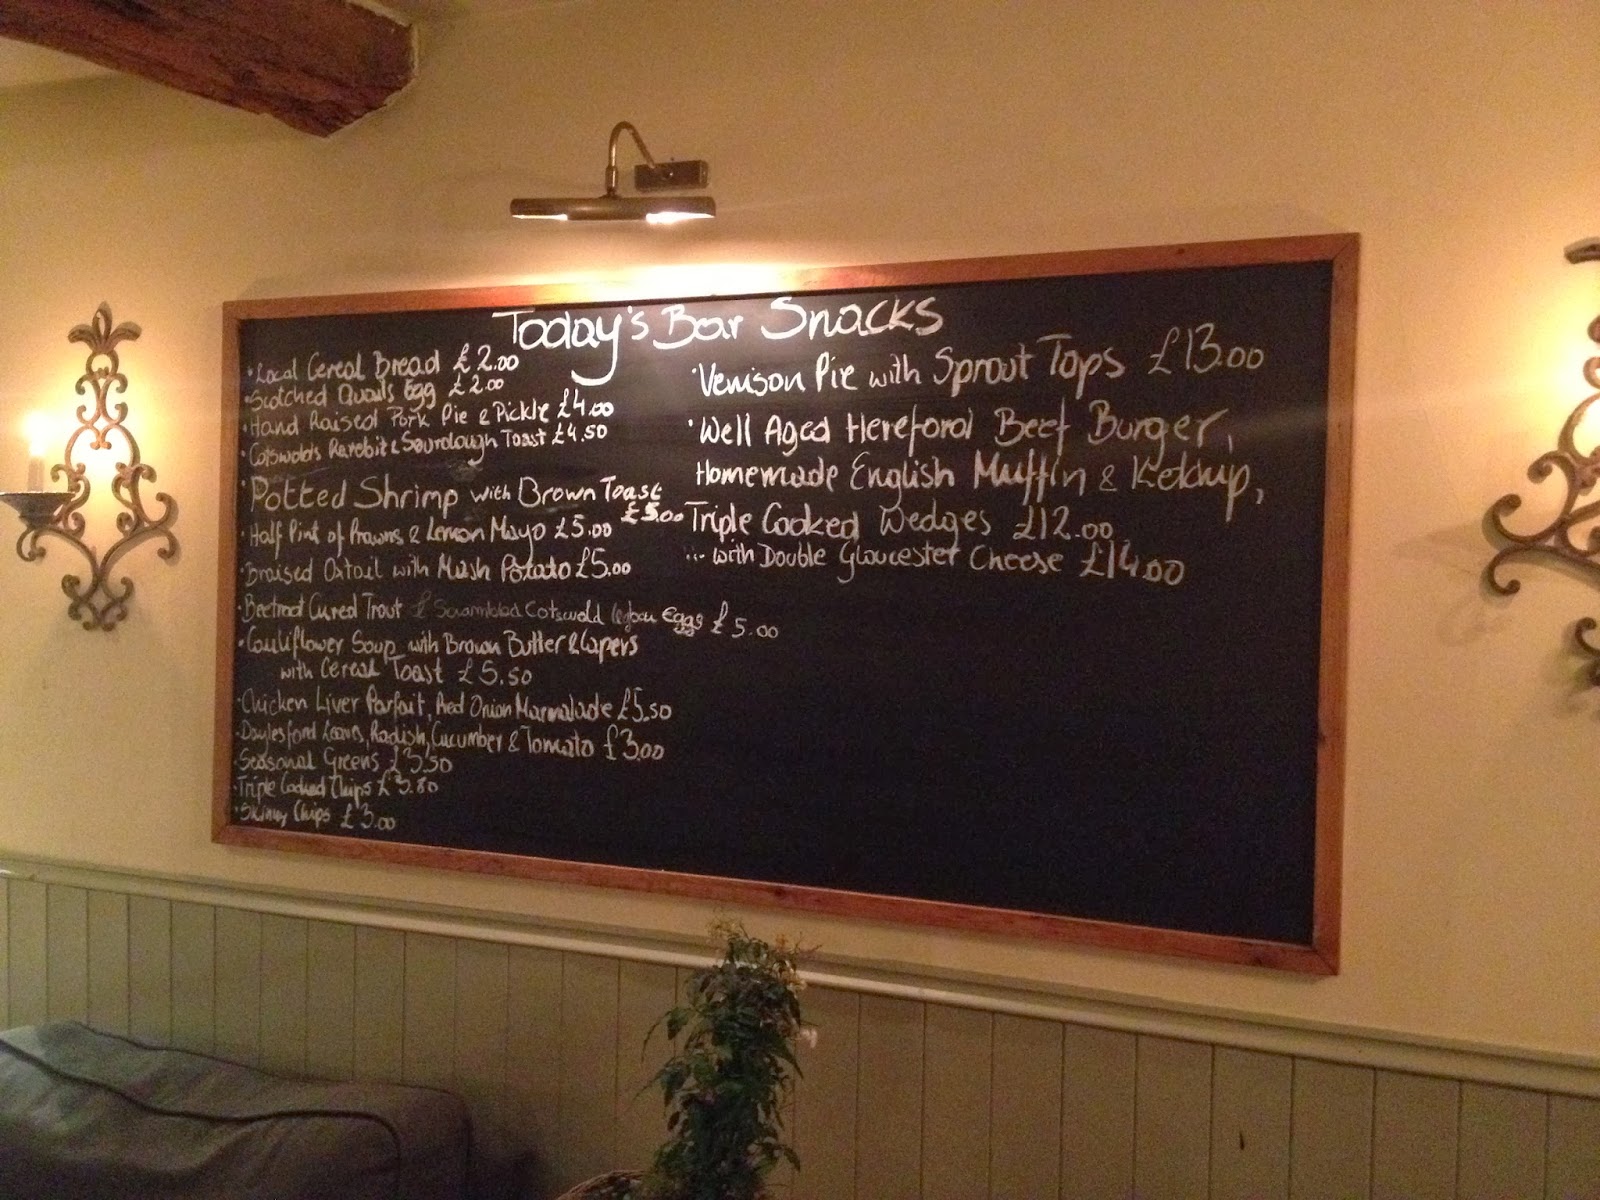 Today's Bar Snacks
• Local Cereal Bread £2.00
• Scotched Quails Egg £2.00
• Hand Raised Pork Pie & Pickle £4.00
• Cotswolds Rarebit & Sourdough Toast £4.50
• Potted Shrimp with Brown Toast
£5.00
• Half Pint of Prawns & Lemon Mayo £5.00
• Braised Oxtail with Mash Potato £5.00
• Beetroot Cured Trout & Scrambled Cotswold Legbar Eggs £5.00
• Cauliflower Soup with Brown Butter & Capers
with Cereal Toast £5.50
• Chicken Liver Parfait, Red Onion Marmalade £5.50
• Daylesford Leaves, Radish, Cucumber & Tomato £3.00
• Seasonal Greens £3.50
• Triple Cooked Chips £3.80
• Skinny Chips £3.00
• Venison Pie with Sprout Tops £13.00
• Well Aged Hereford Beef Burger,
Homemade English Muffin & Ketchup,
Triple Cooked Wedges £12.00
... with Double Gloucester Cheese £14.00